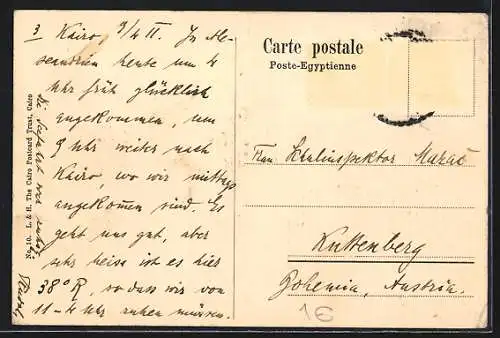 3 Kairo, 9/4 11. In Ale-
xandrien heute um 4
Uhr früh glücklich
angekommen, um
9 Uhr weiter nach
Kairo, wo wir mittags
angekommen sind. Es
geht uns gut, aber
sehr heiss ist es hier
38° R, so dass wir von
11-4 Uhr ruhen müssen.
Die Seefahrt war
No. 10. L. & H. The Cairo Postcard Trust, Cairo
Carte postale
Poste-Egyptienne
Frau Schulinspektor
Kuttenberg
Bohemia, Austria.
1€